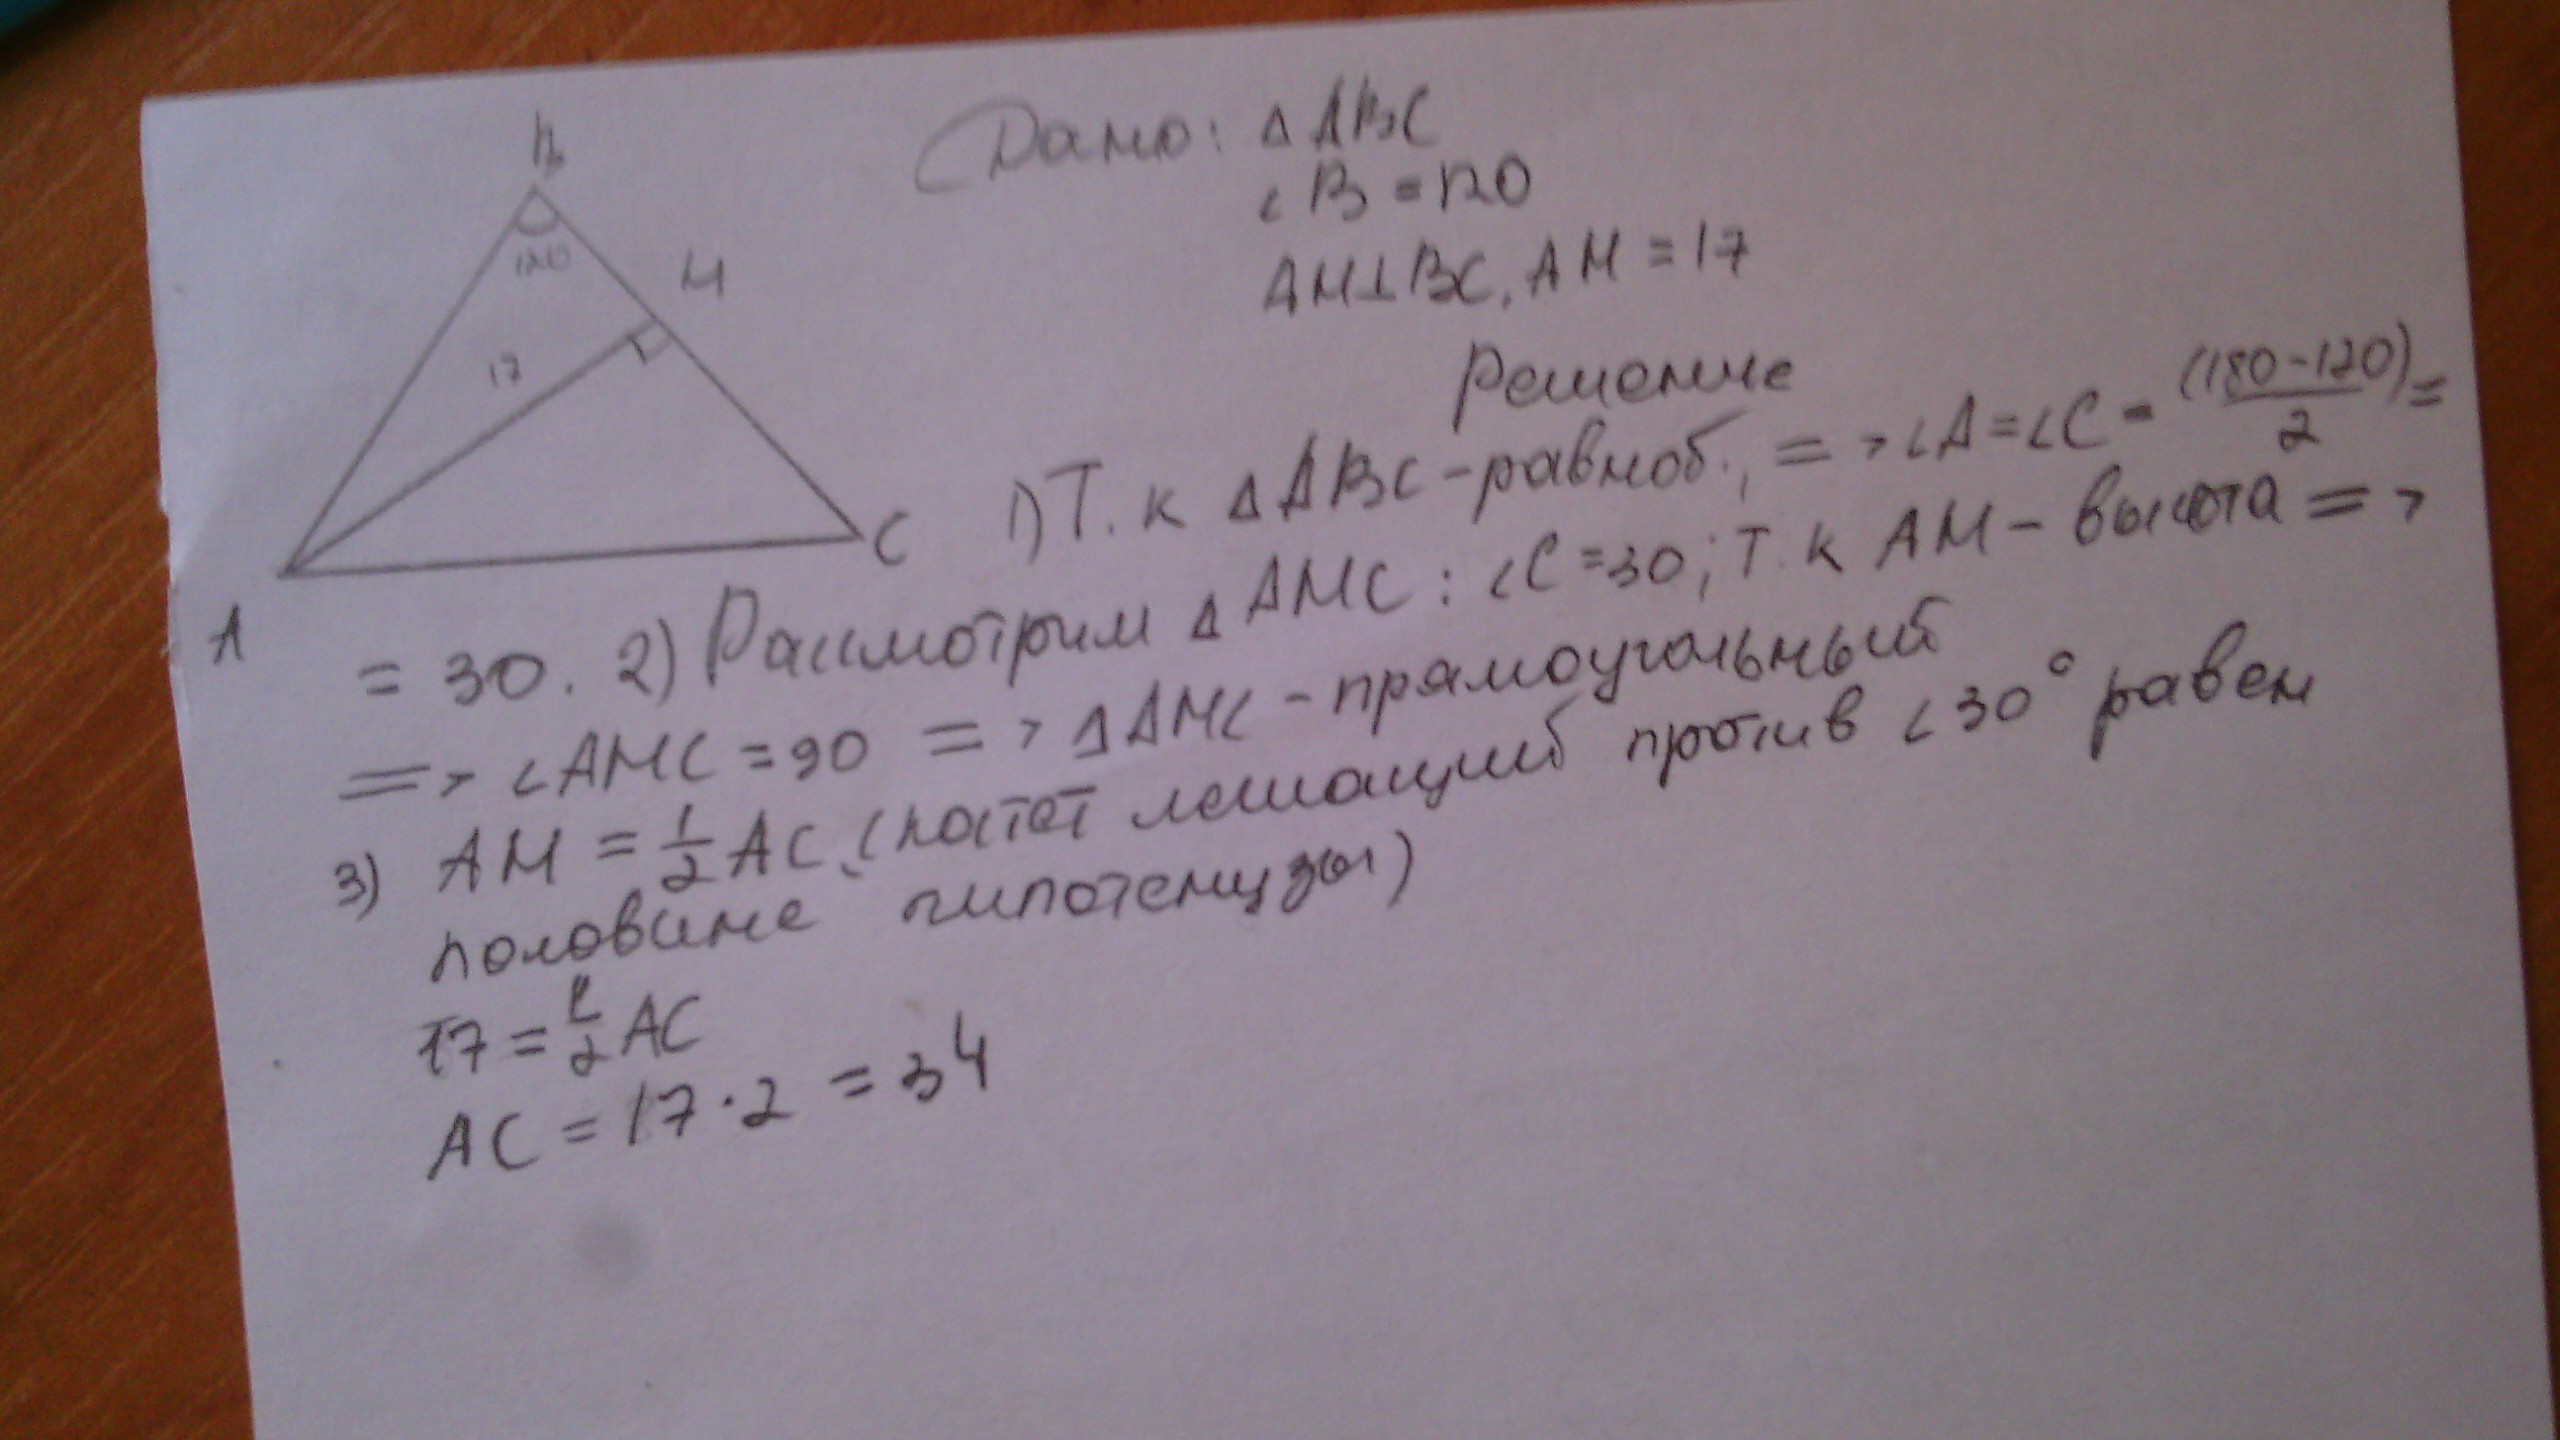 B
120
M
17
C
A
Дано: Δ ABC
∠B = 120
AM⊥BC, AM = 17
Решение
1) Т. к Δ ABC - равноб., => ∠A = ∠C = (180-120)/2 =
= 30. 2) Рассмотрим Δ AMC : ∠C = 30; Т. к AM - высота =>
=> ∠AMC = 90 => Δ AMC - прямоугольный
3) AM = 1/2 AC (катет лежащий против ∠30° равен
половине гипотенузы)
17 = 1/2 AC
AC = 17 · 2 = 34